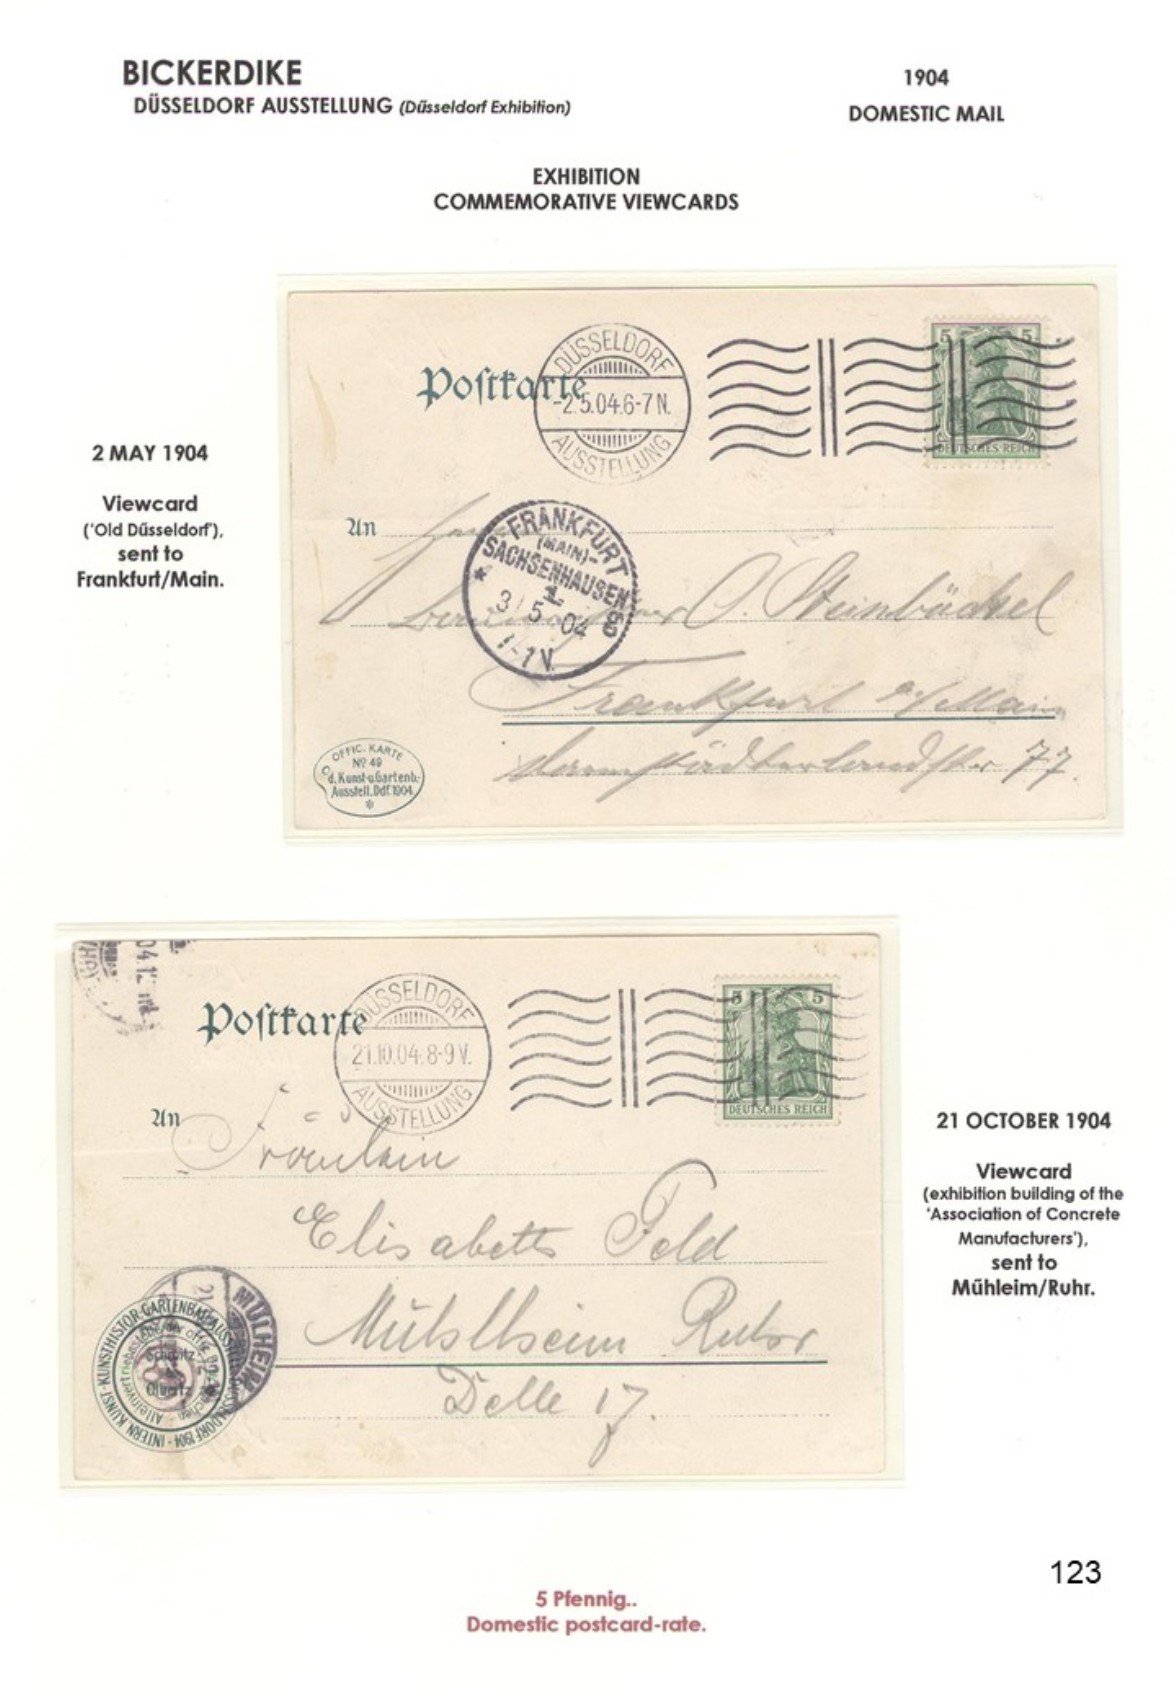 BICKERDIKE
DÜSSELDORF AUSSTELLUNG (Düsseldorf Exhibition)
1904
DOMESTIC MAIL
EXHIBITION
COMMEMORATIVE VIEWCARDS
2 MAY 1904
Viewcard
('Old Düsseldorf'),
sent to
Frankfurt/Main.
Postkarte
DÜSSELDORF
-2.5.04.6-7 N.
AUSSTELLUNG
5 5
DEUTSCHES REICH
An
FRANKFURT
(MAIN)-
SACHSENHAUSEN
3 5 04
1-1 N.
O. Steinbächel
Frankfurt a/Main
77.
OFFIC. KARTE
Nº 49
d. Kunst-u. Gartenb.-
Ausstell. Ddf. 1904.
04.12
Postkarte
DÜSSELDORF
21.10.04.8-9 V.
AUSSTELLUNG
5 5
DEUTSCHES REICH
An
Fräulein
Elisabeth Feld
Mühlheim Ruhr
Delle 17.
MÜLHEIM
INTERN. KUNST-KUNSTHISTOR-GARTENBAU AUSST. DÜSSELDORF 1904
Schmitz
Olbertz
21 OCTOBER 1904
Viewcard
(exhibition building of the
'Association of Concrete
Manufacturers'),
sent to
Mühleim/Ruhr.
123
5 Pfennig..
Domestic postcard-rate.